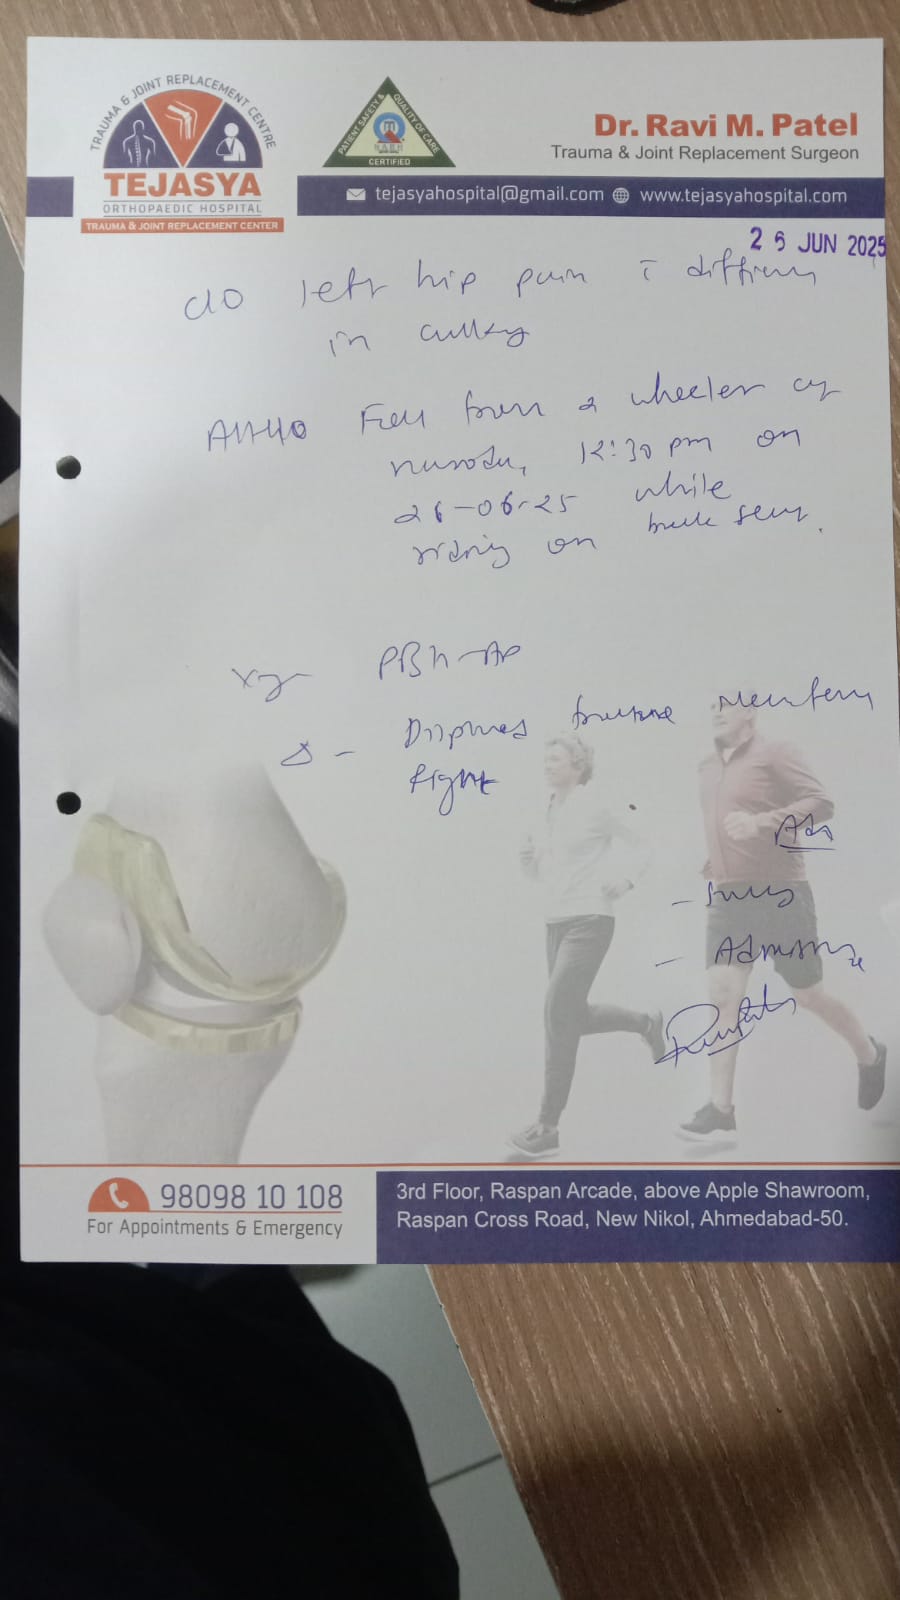 TRAUMA & JOINT REPLACEMENT CENTRE
TEJASYA
ORTHOPAEDIC HOSPITAL
TRAUMA & JOINT REPLACEMENT CENTER
PATIENT SAFETY & QUALITY OF CARE
NABH
CERTIFIED
Dr. Ravi M. Patel
Trauma & Joint Replacement Surgeon
tejasyahospital@gmail.com www.tejasyahospital.com
26 JUN 2025
c/o left hip pain
in
Fall from 2 wheeler
12:30 pm on
26-06-25 while
riding on
PBH-AP
Δ -
Right
Adv
-
-
98098 10 108
For Appointments & Emergency
3rd Floor, Raspan Arcade, above Apple Shawroom,
Raspan Cross Road, New Nikol, Ahmedabad-50.